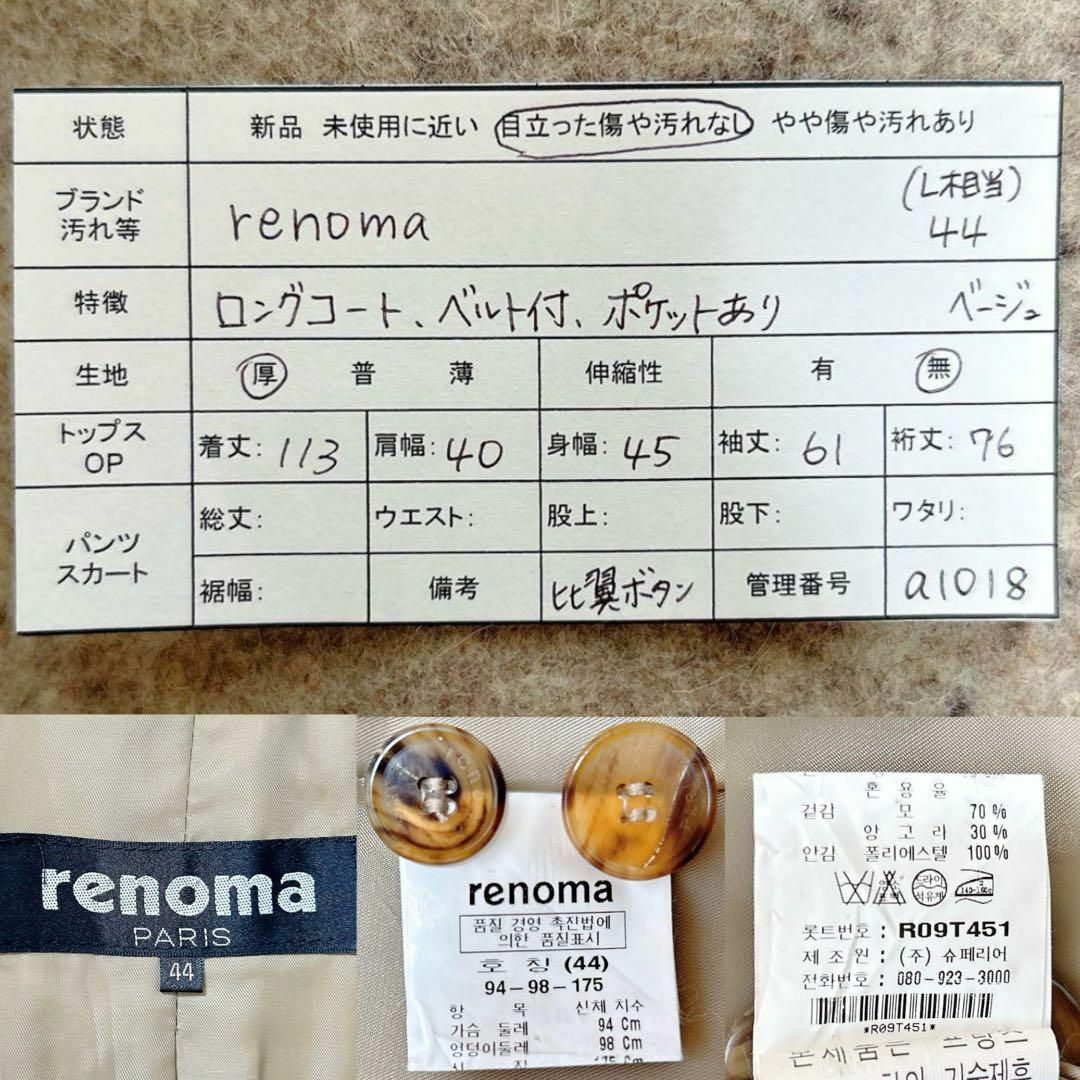 状態 新品 未使用に近い 目立った傷や汚れなし やや傷や汚れあり
ブランド
汚れ等
renoma
(L相当)
44
特徴 ロングコート、ベルト付、ポケットあり ベージュ
生地 厚 普 薄 伸縮性 有 無
トップス
OP
着丈: 113 肩幅: 40 身幅: 45 袖丈: 61 裄丈: 76
パンツ
スカート
総丈: ウエスト: 股上: 股下: ワタリ:
裾幅: 備考 比翼ボタン 管理番号 a1018
renoma
PARIS
44
reno
renoma
품질 경영 촉진법에
의한 품질표시
호 칭 (44)
94-98-175
항 목 신체 치수
가슴 둘레 94 Cm
엉덩이둘레 98 Cm
혼 용 율
겉감 모 70 %
앙 고 라 30 %
안감 폴리에스텔 100 %
드라이
석유계
140-160℃
롯트번호 : R09T451
제 조 원 : (주) 슈페리어
전화번호 : 080-923-3000
*R09T451*
본제품은 프랑스
기술제휴